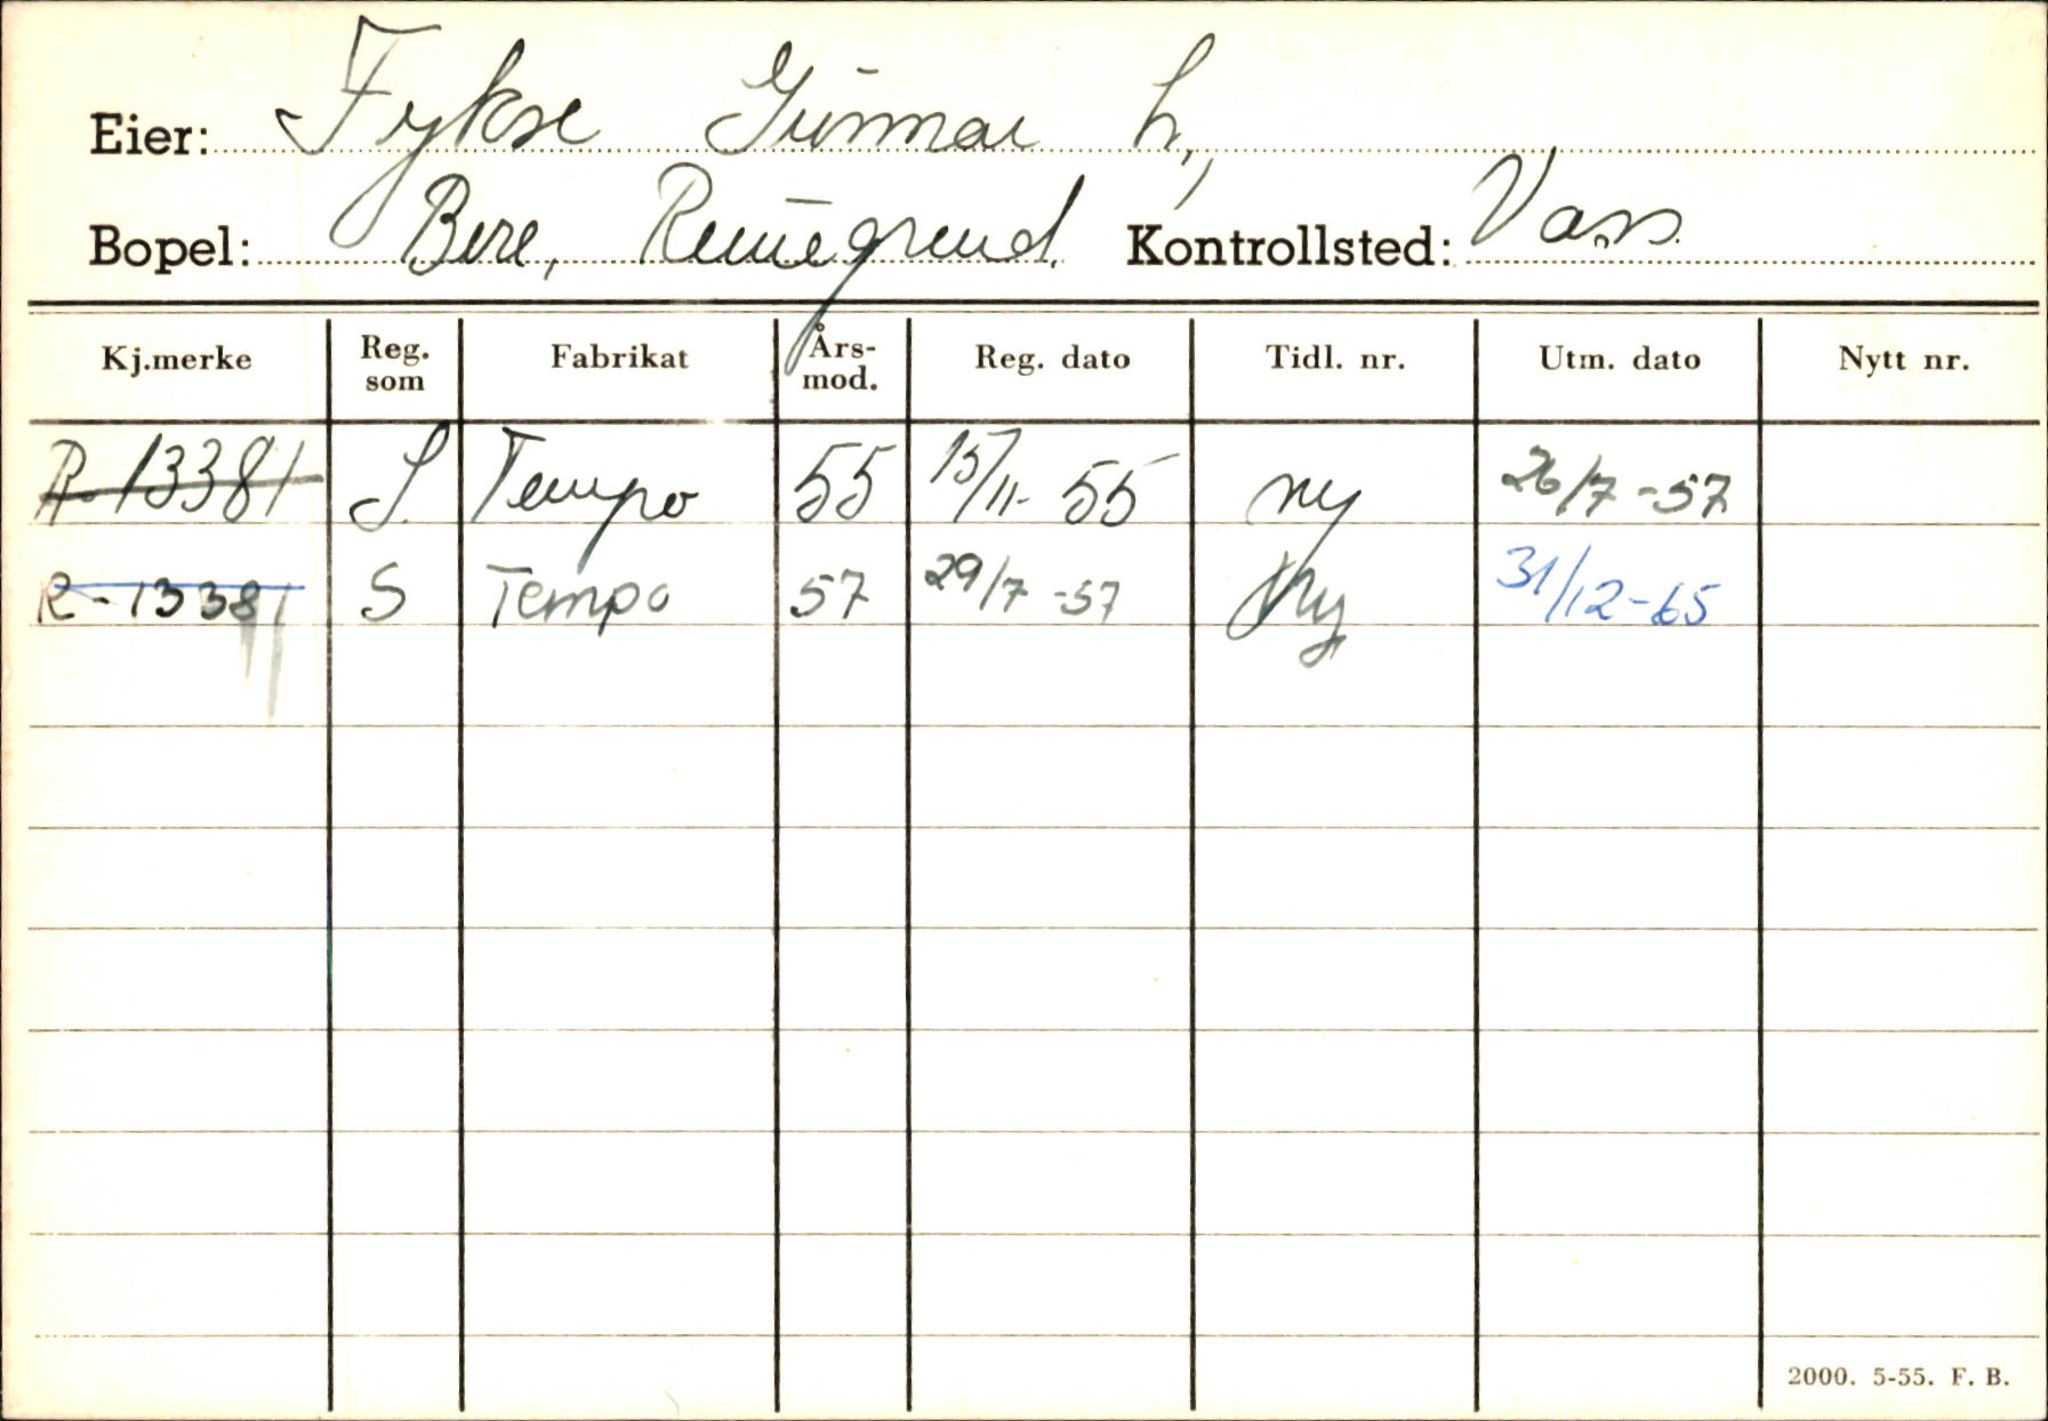 Eier: Fykse Gunnar L.,
Bopel: Bere, Kontrollsted: Voss.
Kj.merke Reg. som Fabrikat Års-mod. Reg. dato Tidl. nr. Utm. dato Nytt nr.
R-13381 S. Tempo 55 15/11-55 ny 26/7-57
R-13381 S Tempo 57 29/7-57 Ny 31/12-65
2000. 5-55. F. B.